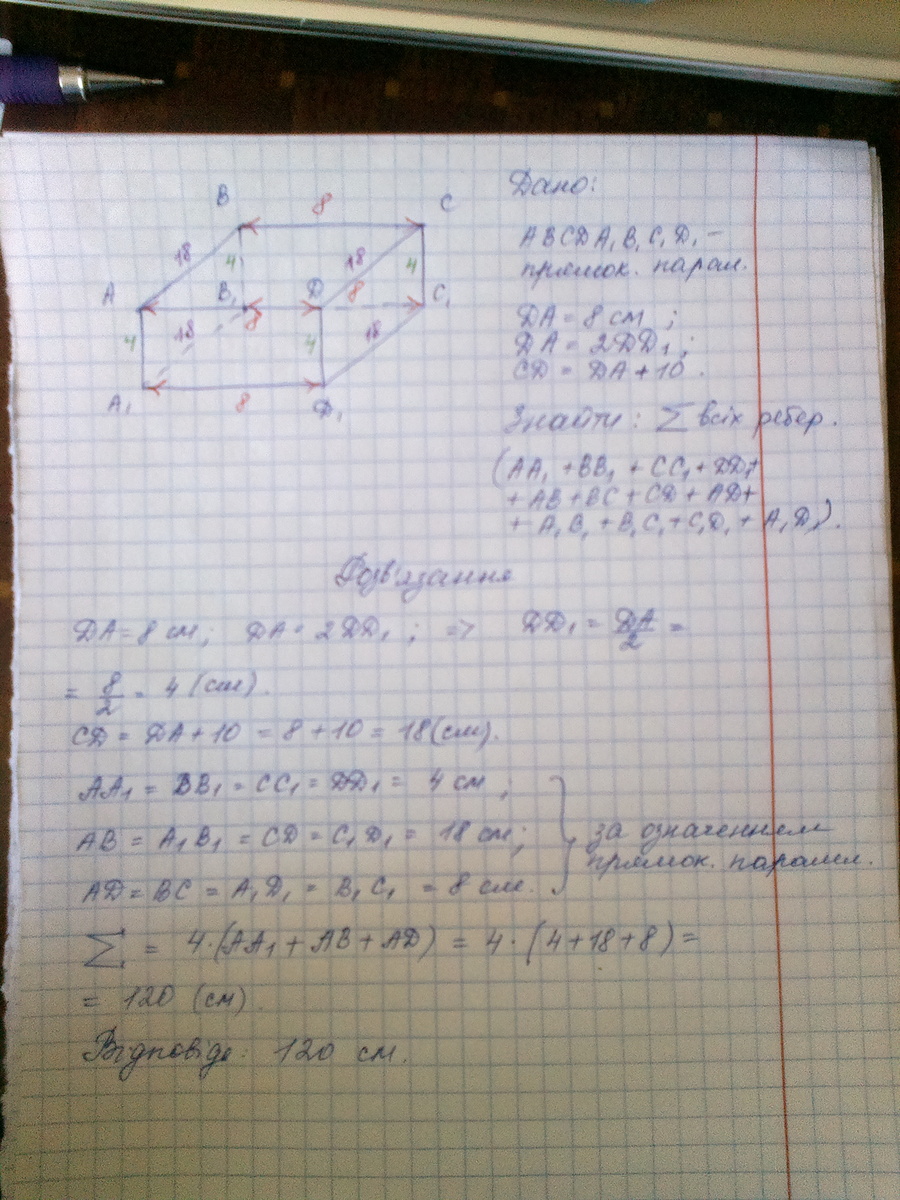 B 8 C
18 4 18 4
A B₁ 8 D 8 C₁
4 18 4 18
A₁ 8 D₁
Дано:
ABCDA₁B₁C₁D₁ –
прямок. парал.
DA = 8 см ;
DA = 2DD₁ ;
CD = DA + 10 .
Знайти : ∑ всіх ребер .
(AA₁ + BB₁ + CC₁ + DD₁+
+ AB + BC + CD + AD+
+ A₁B₁ + B₁C₁ + C₁D₁ + A₁D₁) .
Розв'язання
DA = 8 см ; DA = 2DD₁ ; => DD₁ = DA/2 =
= 8/2 = 4 (см) .
CD = DA + 10 = 8 + 10 = 18 (см).
AA₁ = BB₁ = CC₁ = DD₁ = 4 см ;
AB = A₁B₁ = CD = C₁D₁ = 18 см ;
AD = BC = A₁D₁ = B₁C₁ = 8 см .
за означенням
прямок. паралел.
∑ = 4·(AA₁ + AB + AD) = 4 · (4+18+8) =
= 120 (см) .
Відповідь : 120 см .